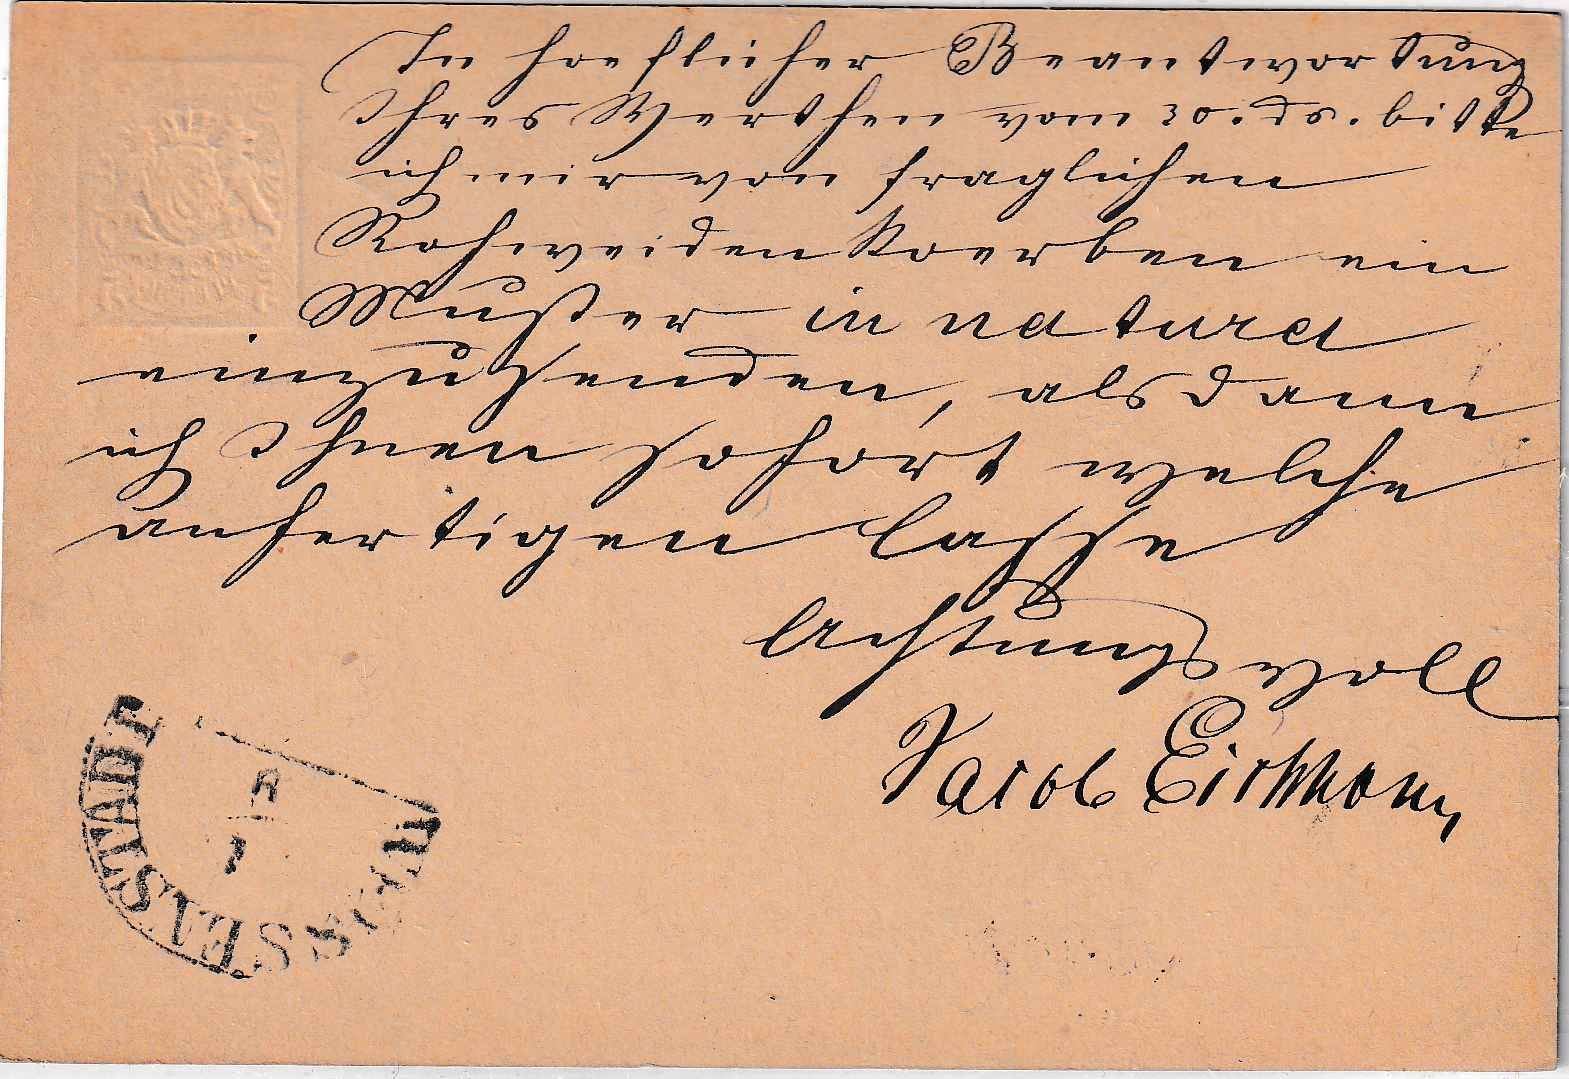 In hoeflicher Beantwortung
Ihres Werthen vom 20. ds. bitte
ich mir von fraglichen
Rohweidenkoerben ein
Muster in natura
einzusenden, alsdann
ich Ihnen sofort welche
anfertigen lasse
Achtungsvoll
Jacob Eichhorn